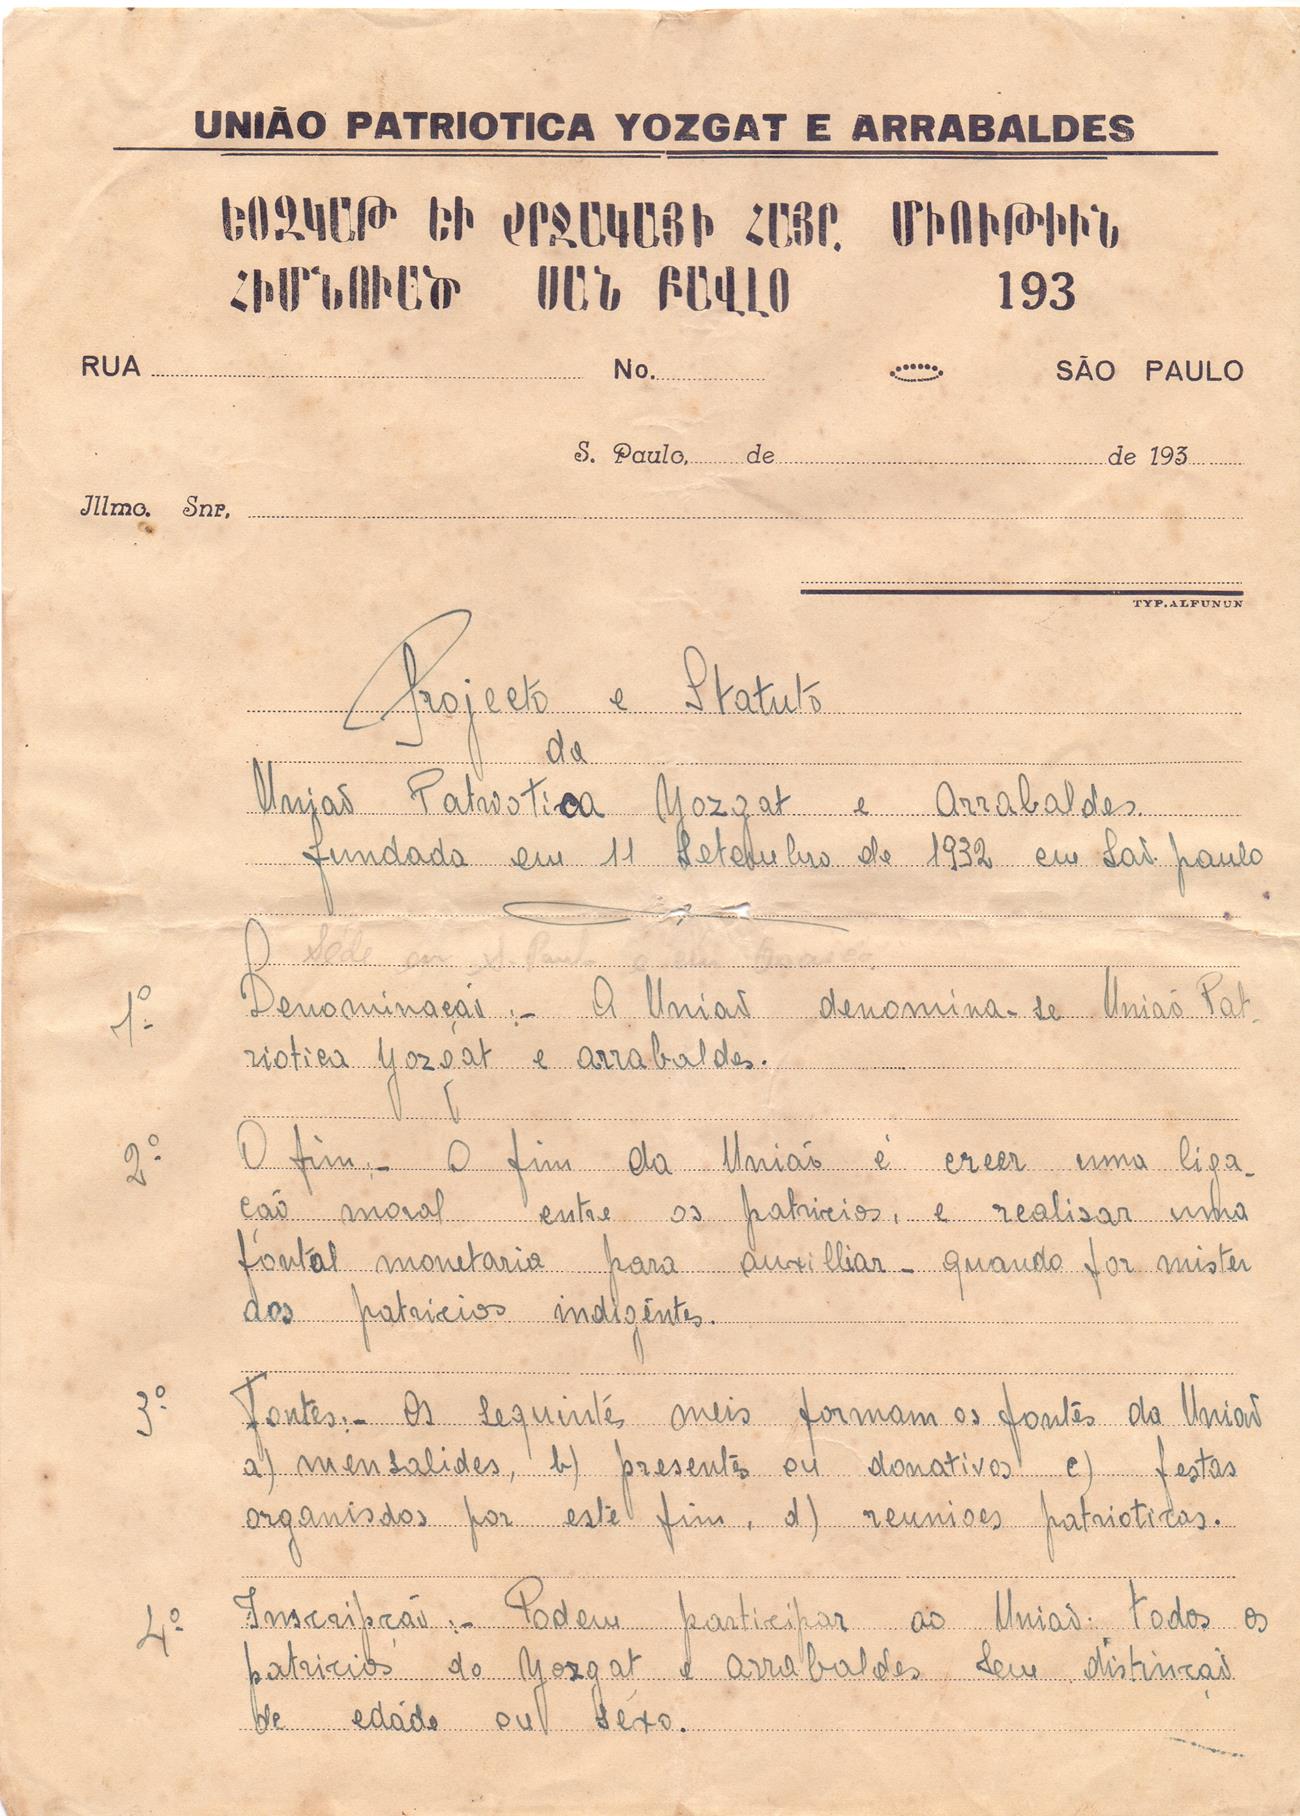 UNIÃO PATRIOTICA YOZGAT E ARRABALDES
ԵՈԶԿԱԹ ԵՒ ՇՐՋԱԿԱՅԻ ՀԱՅՐ. ՄԻՈՒԹԻՒՆ
ՀԻՄՆՈՒԱԾ ՍԱՆ ԲԱՎԼՕ 193
RUA No. SÃO PAULO
S. Paulo, de de 193
Illmo. Snr.
TYP. ALFUNUN
Projecto e Statuto
da
União Patriotica Yozgat e Arrabaldes.
fundada em 11 Setembro de 1932 em São paulo
Séde em S. Paulo
1º Denominação :- A União denomina-se União Pat-
riotica Yozgat e arrabaldes.
2º O fim :- O fim da União é creer uma liga-
ção moral entre os patricios, e realisar uma
fontal monetaria para auxilliar - quando for mister
dos patricios indigéntes.
3º Fontes :- Os sequintés meis formam os fontés da União
a) mensalides, b) presentés ou donativos c) festas
organisdos por esté fim, d) reunioes patrioticas.
4º Inscripção :- Podem participar ao União: todos os
patricios do Yozgat e arrabaldes sem distincção
de edáde ou séxo.